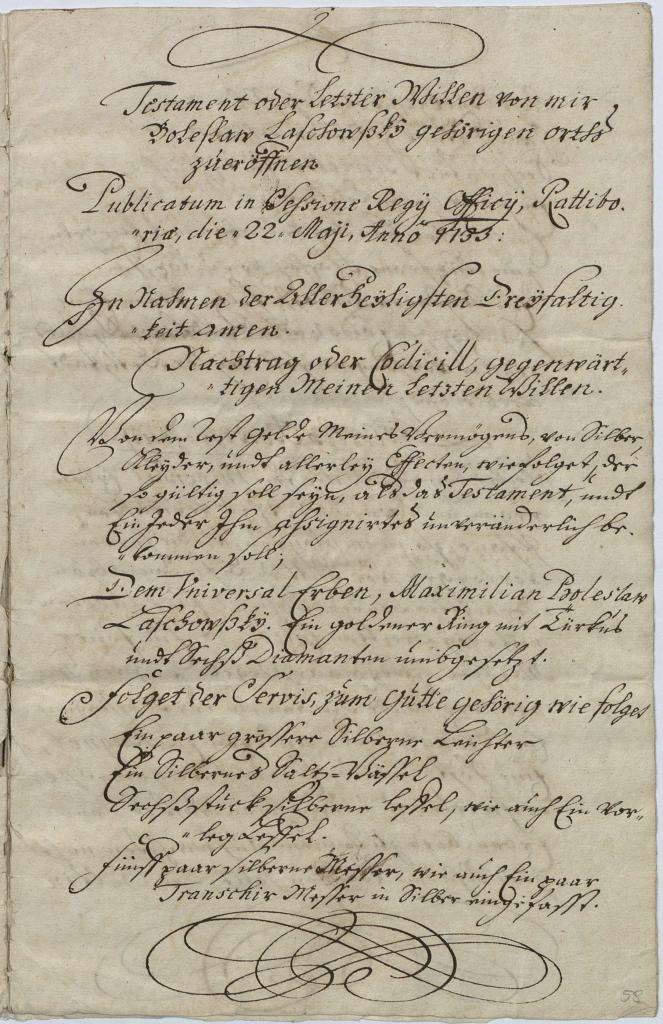 Testament oder Letster Willen von mir
Boleslaw Laschowßkÿ gehörigen orths
zueröffnen
Publicatum in Sessione Regÿ Officÿ, Rattibo-
riæ, die 22 Maji, Anno 1733:
In Nahmen der Allerheÿligsten Dreÿfaltig-
keit amen.
Nachtrag oder Codicill, gegenwärt-
tigen Meinen Letsten Willen.
Von dem Rest Gelde Meines Vermögens, von Silber
Kleÿder, undt allerleÿ Effecten, wie folget, der
so gültig soll seÿn, als das Testament, undt
Ein Jeder Ihm assignirtes unveränderlich be-
kommen soll;
Dem Universal Erben, Maximilian Boleslaw
Laschowßkÿ. Ein goldener Ring mit Türkus
undt Sechß Diamanten umbgesetzt.
Folget der Servis, zum Gutte gehörig wie folget
Ein paar grössere Silberne Leichter
Ein Silbernes Saltz-Vässel
Sechß stück silberne lessel, wie auch Ein vor-
leg Lessel.
fünff paar silberne Messer, wie auch Ein paar
Transchir Messer in Silber eingefasst.
58